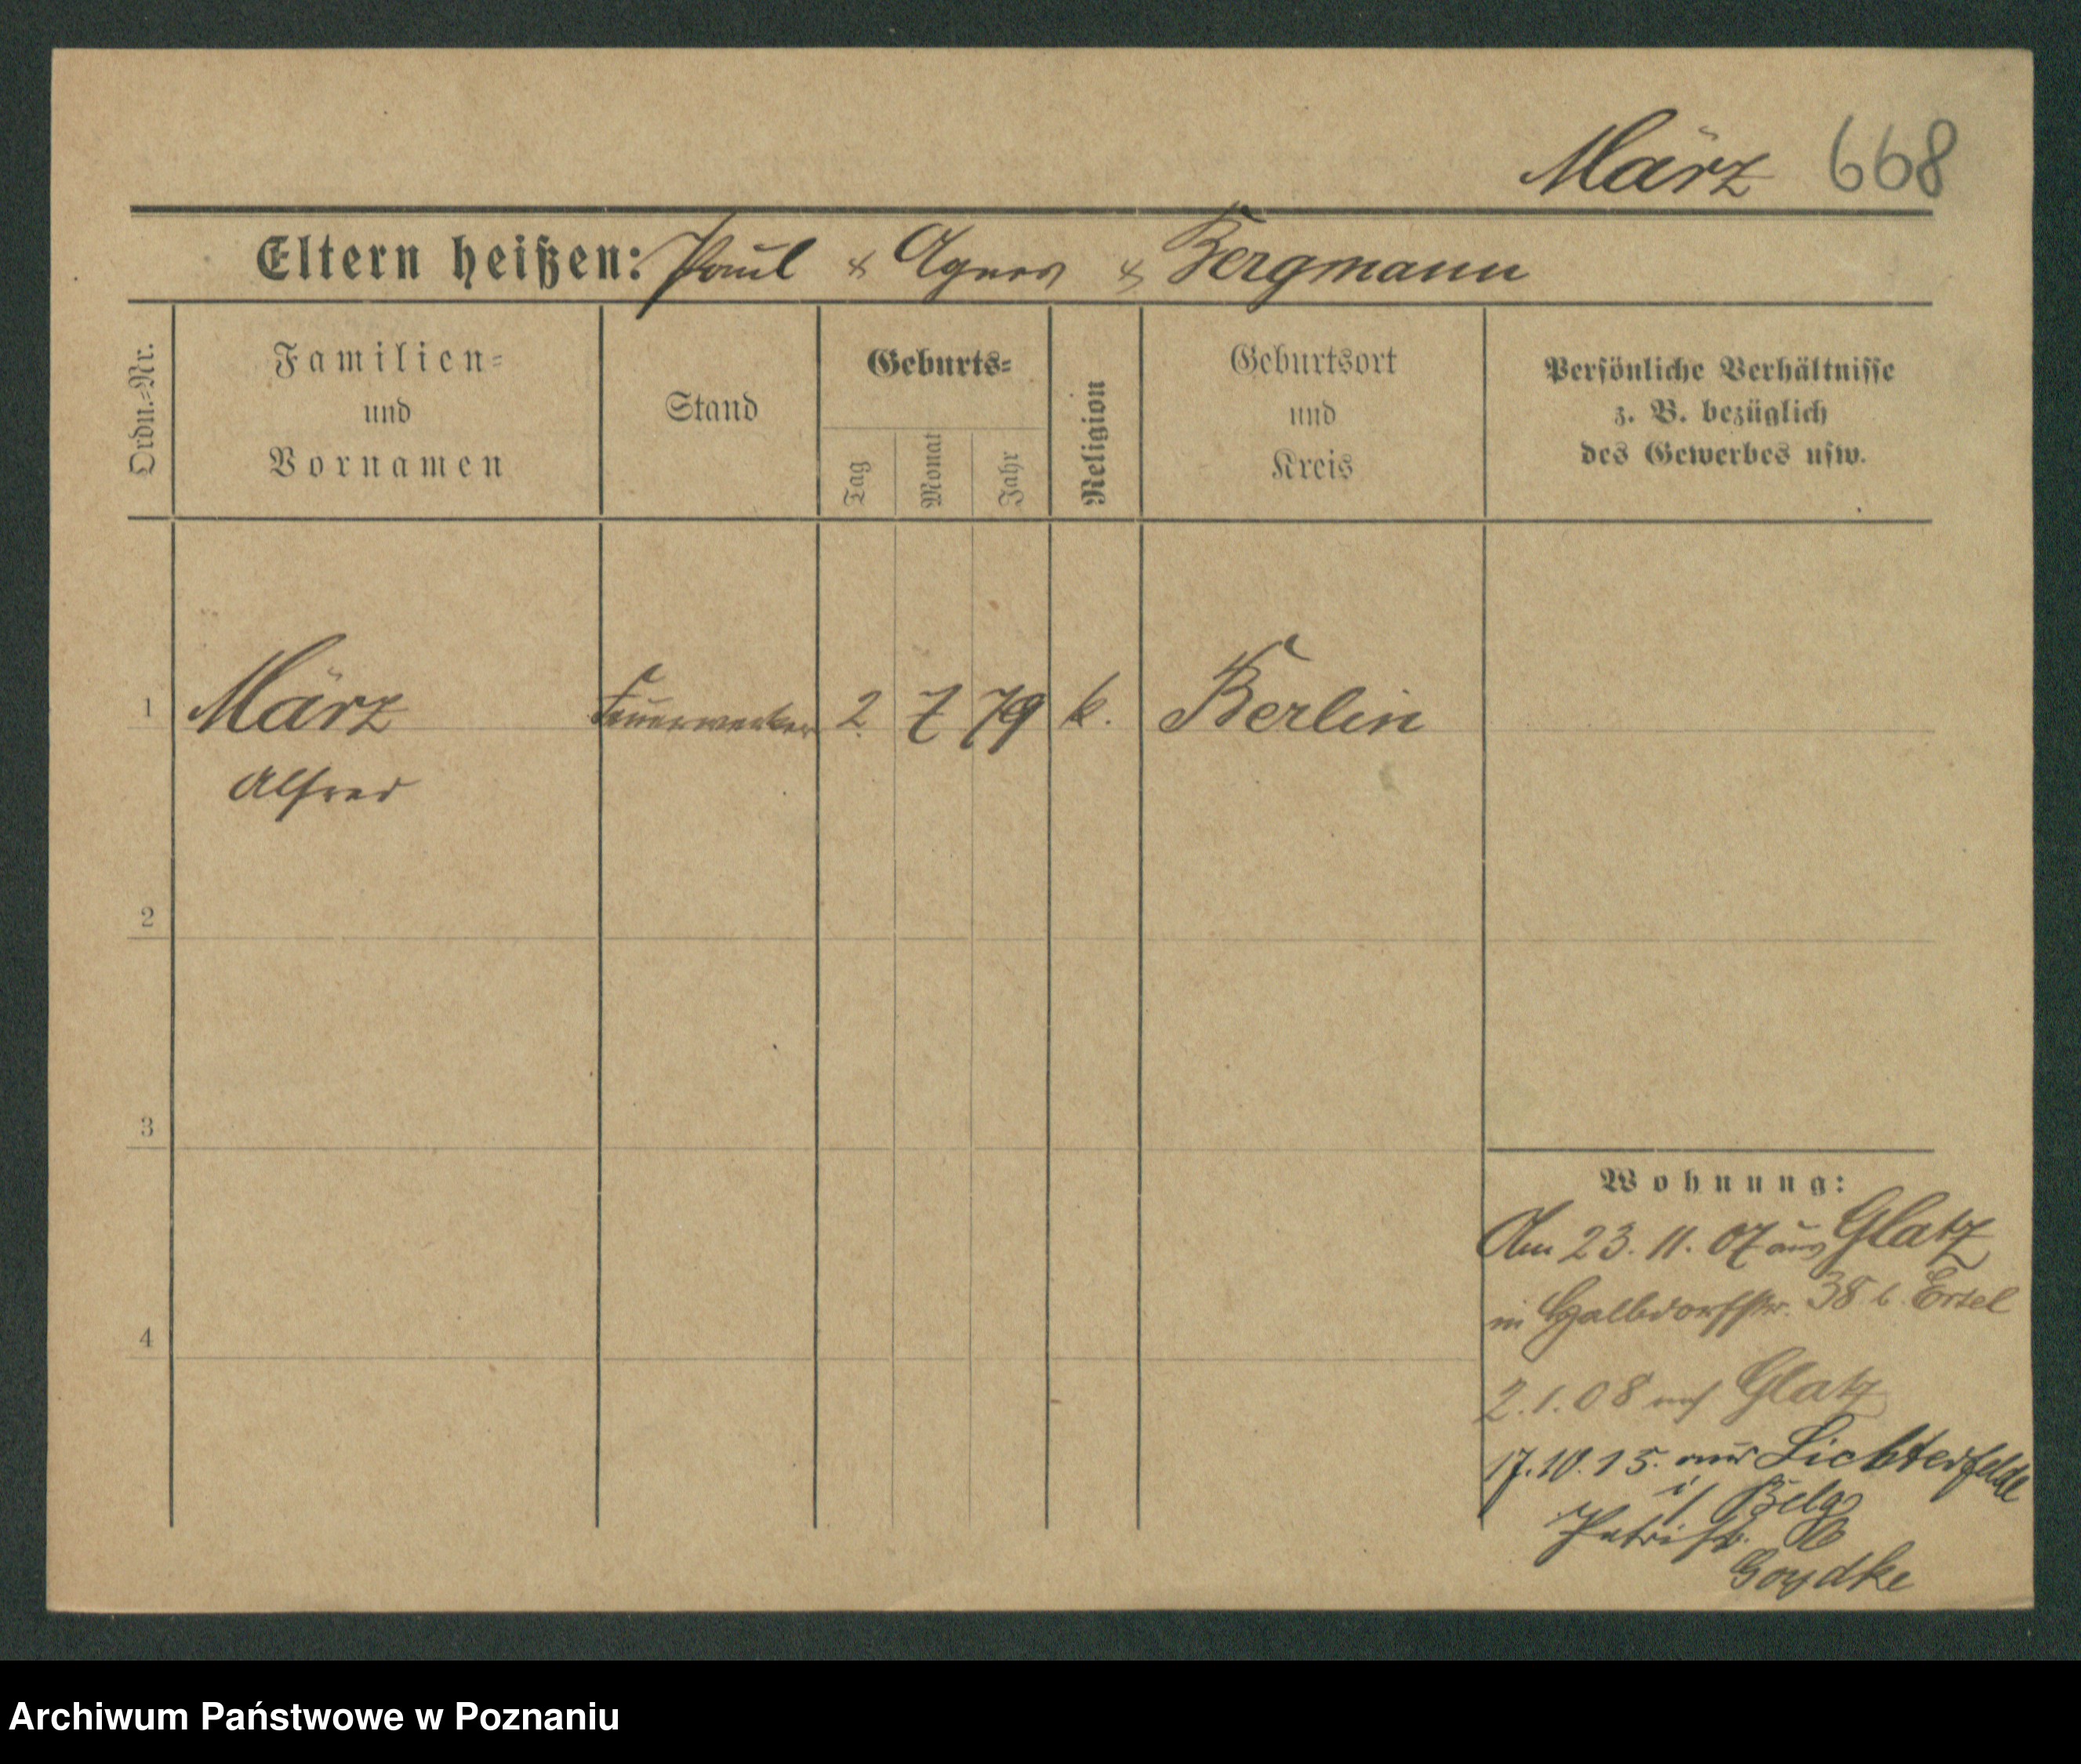 März 668
Eltern heißen: Paul & Agnes & Bergmann
Ordn.-Nr.
Familien-
und
Vornamen
Stand
Geburts-
Tag
Monat
Jahr
Religion
Geburtsort
und
Kreis
Persönliche Verhältnisse
z. B. bezüglich
des Gewerbes usw.
1 März Feuerwerker 2. 7 79 k. Berlin
Alfred
2
3
4
Wohnung:
Am 23. 11. 07 aus Glatz
in Halbdorfstr. 38 b. Ertel
2. 1. 08 nach Glatz
17. 10. 15. aus Lichterfelde
i/ Belg
Patristr.
Goydke
Archiwum Państwowe w Poznaniu